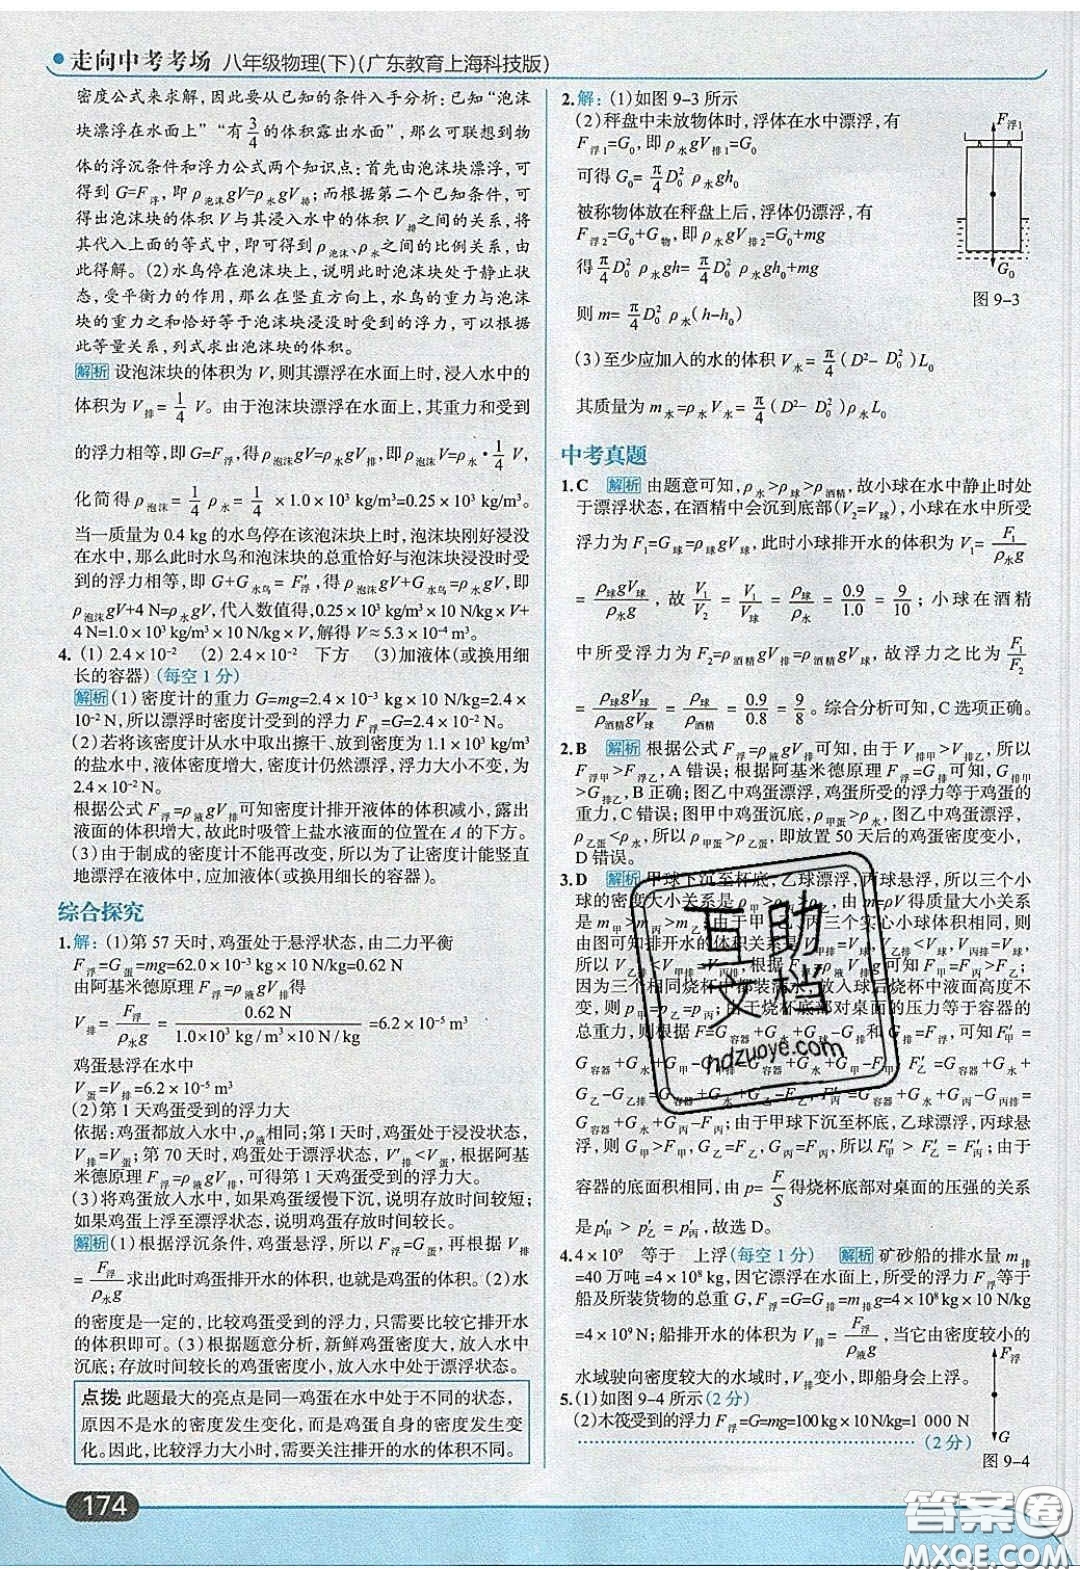 走向中考考场 八年级物理(下)(广东教育上海科技版)
密度公式来求解,因此要从已知的条件入手分析:已知“泡沫
块漂浮在水面上”“有3/4的体积露出水面”,那么可联想到物
体的浮沉条件和浮力公式两个知识点:首先由泡沫块漂浮,可
得到 G=F浮,即ρ泡沫gV=ρ水gV排;而根据第二个已知条件,可
得出泡沫块的体积 V与其浸入水中的体积 V排之间的关系,将
其代入上面的等式中,即可得到ρ泡沫、ρ水之间的比例关系,由
此得解。(2)水鸟停在泡沫块上,说明此时泡沫块处于静止状
态,受平衡力的作用,那么在竖直方向上,水鸟的重力与泡沫
块的重力之和恰好等于泡沫块浸没时受到的浮力,可以根据
此等量关系,列式求出泡沫块的体积。
解析 设泡沫块的体积为 V,则其漂浮在水面上时,浸入水中的
体积为 V排=1/4 V。由于泡沫块漂浮在水面上,其重力和受到
的浮力相等,即 G=F浮,得ρ泡沫gV=ρ水gV排,即ρ泡沫V=ρ水·1/4 V,
化简得ρ泡沫=1/4 ρ水=1/4×1.0×10³ kg/m³=0.25×10³ kg/m³。
当一质量为0.4 kg的水鸟停在该泡沫块上时,泡沫块刚好浸没
在水中,那么此时水鸟和泡沫块的总重恰好与泡沫块浸没时受
到的浮力相等,即 G+G水鸟=F′浮,得ρ泡沫gV+G水鸟=ρ水gV,即
ρ泡沫gV+4 N=ρ水gV,代入数值得,0.25×10³ kg/m³×10 N/kg×V+
4 N=1.0×10³ kg/m³×10 N/kg×V,解得 V≈5.3×10⁻⁴ m³。
4.(1)2.4×10⁻² (2)2.4×10⁻² 下方 (3)加液体(或换用细
长的容器)(每空1分)
解析 (1)密度计的重力 G=mg=2.4×10⁻³ kg×10 N/kg=2.4×
10⁻² N,所以漂浮时密度计受到的浮力 F浮=G=2.4×10⁻² N。
(2)若将该密度计从水中取出擦干、放到密度为1.1×10³ kg/m³
的盐水中,液体密度增大,密度计仍然漂浮,浮力大小不变,为
2.4×10⁻² N。
根据公式 F浮=ρ液gV排可知密度计排开液体的体积减小,露出
液面的体积增大,故此时吸管上盐水液面的位置在 A 的下方。
(3)由于制成的密度计不能再改变,所以为了让密度计能竖直
地漂浮在液体中,应加液体(或换用细长的容器)。
综合探究
1.解:(1)第57天时,鸡蛋处于悬浮状态,由二力平衡
F浮=G蛋=mg=62.0×10⁻³ kg×10 N/kg=0.62 N
由阿基米德原理 F浮=ρ液gV排得
V排=F浮/ρ水g=0.62 N/1.0×10³ kg/m³×10 N/kg=6.2×10⁻⁵ m³
鸡蛋悬浮在水中
V蛋=V排=6.2×10⁻⁵ m³
(2)第1天鸡蛋受到的浮力大
依据:鸡蛋都放入水中,ρ液相同;第1天时,鸡蛋处于浸没状态,
V排=V蛋;第70天时,鸡蛋处于漂浮状态,V′排<V蛋,根据阿基
米德原理 F浮=ρ液gV排,可得第1天鸡蛋受到的浮力大。
(3)将鸡蛋放入水中,如果鸡蛋缓慢下沉,说明存放时间较短;
如果鸡蛋上浮至漂浮状态,说明鸡蛋存放时间较长。
解析 (1)根据浮沉条件,鸡蛋悬浮,所以 F浮=G蛋,再根据 V排
=F浮/ρ水g求出此时鸡蛋排开水的体积,也就是鸡蛋的体积。(2)水
的密度是一定的,比较鸡蛋受到的浮力,只需要比较它排开水的
体积即可。(3)根据题意分析,新鲜鸡蛋密度大,放入水中下
沉底;存放时间较长的鸡蛋密度小,放入水中处于漂浮状态。
点拨:此题最大的亮点是同一鸡蛋在水中处于不同的状态,
原因不是水的密度发生变化,而是鸡蛋自身的密度发生变
化。因此,比较浮力大小时,需要关注排开的水的体积不同。
174
2.解:(1)如图9-3所示
(2)秤盘中未放物体时,浮体在水中漂浮,有
F浮1=G₀,即ρ水gV排1=G₀
可得 G₀=π/4 D₀² ρ水gh₀
被称物体放在秤盘上后,浮体仍漂浮,有
F浮2=G₀+G物,即ρ水gV排2=G₀+mg
得π/4 D₀² ρ水gh=π/4 D₀² ρ水gh₀+mg
则 m=π/4 D₀² ρ水(h-h₀)
(3)至少应加入的水的体积 V水=π/4(D²-D₀²)L₀
其质量为 m水=ρ水V水=π/4(D²-D₀²)ρ水L₀
F浮1
G₀
图9-3
中考真题
1.C 解析 由题意可知,ρ水>ρ球>ρ酒精,故小球在水中静止时处
于漂浮状态,在酒精中会沉到底部(V₂=V球),小球在水中所受
浮力为 F₁=G球=ρ球gV球,此时小球排开水的体积为 V₁=F₁/ρ水g
=ρ球gV球/ρ水g,故V₁/V₂=V₁/V球=ρ球/ρ水=0.9/1.0=9/10;小球在酒精
中所受浮力为 F₂=ρ酒精gV排=ρ酒精gV球,故浮力之比为F₁/F₂
=ρ球gV球/ρ酒精gV球=ρ球/ρ酒精=0.9/0.8=9/8。综合分析可知,C选项正确。
2.B 解析 根据公式 F浮=ρ液gV排可知,由于 V排甲>V排乙,所以
F浮甲>F浮乙,A错误;根据阿基米德原理 F浮=G排可知,G排甲
>G排乙,B正确;图乙中鸡蛋漂浮,鸡蛋所受的浮力等于鸡蛋的
重力,C错误;图甲中鸡蛋沉底,ρ甲蛋>ρ水,图乙中鸡蛋漂浮,
ρ乙蛋<ρ水,所以ρ甲蛋>ρ乙蛋,即放置50天后的鸡蛋密度变小,
D错误。
3.D 解析 甲球下沉至杯底,乙球漂浮,丙球悬浮,所以三个小
球的密度大小关系是ρ甲>ρ丙>ρ乙,由 m=ρV得质量大小关系
是 m甲>m丙>m乙;由于甲、乙、丙三个实心小球体积相同,则
由图可知排开水的体积关系是 V甲排=V甲,V乙排<V乙,V丙排=V丙,
所以 V乙排<V甲排=V丙排,根据 F浮=ρ液gV排可知 F甲=F丙>F乙;
因为三个相同烧杯中都装满水,放入球后烧杯中液面高度不
变,则 p甲=p乙=p丙;由于烧杯底部对桌面的压力等于容器的
总重力,则根据 F=G容器+G水+G球-G排和 G排=F浮,可知 F′甲=
G容器+G水+G甲-G甲排=G容器+G水+G甲-F甲 F′乙=G容器+G水+
G乙-G乙排=G容器+G水+G乙-F乙 F′丙=G容器+G水+G丙-
G丙排=G容器+G水+G丙-F丙;由于甲球下沉至杯底,乙球漂浮,丙球悬
浮,则 G甲>F甲,G乙=F乙,G丙=F丙,所以 F′甲>F′乙=F′丙;由于
容器的底面积相同,由 p=F/S得烧杯底部对桌面的压强的关系
是 p′甲>p′乙=p′丙,故选D。
4.4×10⁹ 等于 上浮(每空1分) 解析 矿砂船的排水量 m排
=40万吨=4×10⁸ kg,因它漂浮在水面上,所受的浮力 F浮等于
船及所装货物的总重 G,F浮=G=G排=m排g=4×10⁸ kg×10 N/kg
=4×10⁹ N;船排开水的体积为 V排=F浮/ρ液g,当它由密度较小的
水域驶向密度较大的水域时,V排变小,即船身会上浮。
5.(1)如图9-4所示(2分)
(2)木筏受到的浮力 F浮=G=mg=100 kg×10 N/kg=1 000 N
(2分)
F浮
G
图9-4
互助文档
hdzuoye.com
答案圈
MXQE.COM